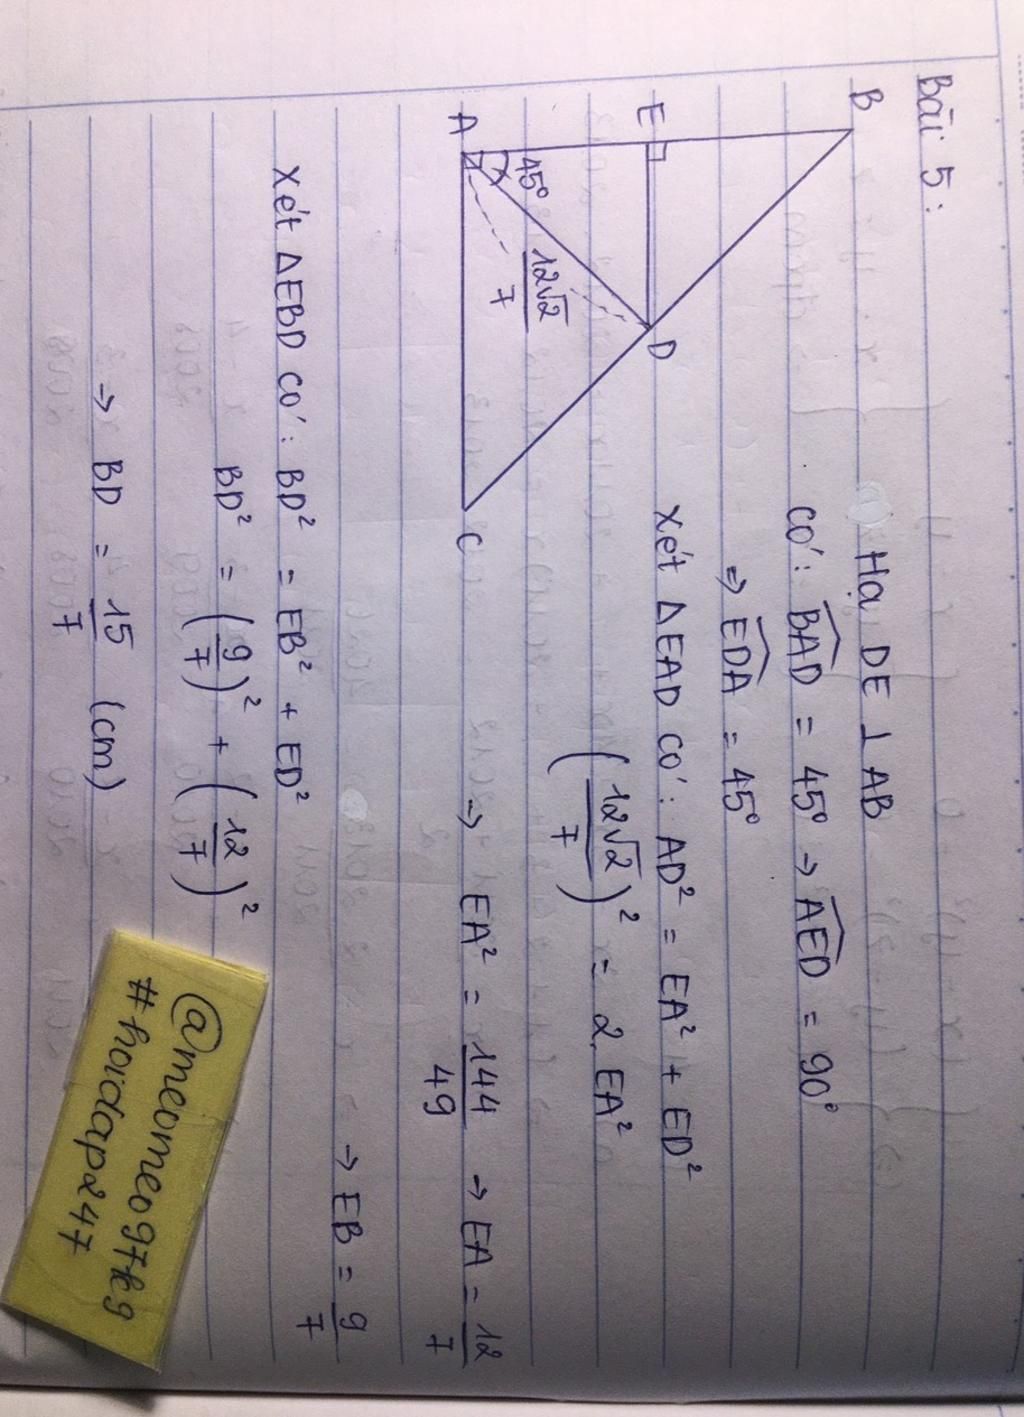 Bài 5:
B
E
A
45°
12√2
7
D
C
Hạ DE ⊥ AB
Có: BAD = 45° → AED = 90°
⇒ EDA = 45°
Xét ΔEAD có: AD² = EA² + ED²
(12√2/7)² = 2. EA²
⇒ EA² = 144/49 → EA = 12/7
→ EB = 9/7
Xét ΔEBD có: BD² = EB² + ED²
BD² = (9/7)² + (12/7)²
→ BD = 15/7 (cm)
@meomeo97k9
#hoidap247